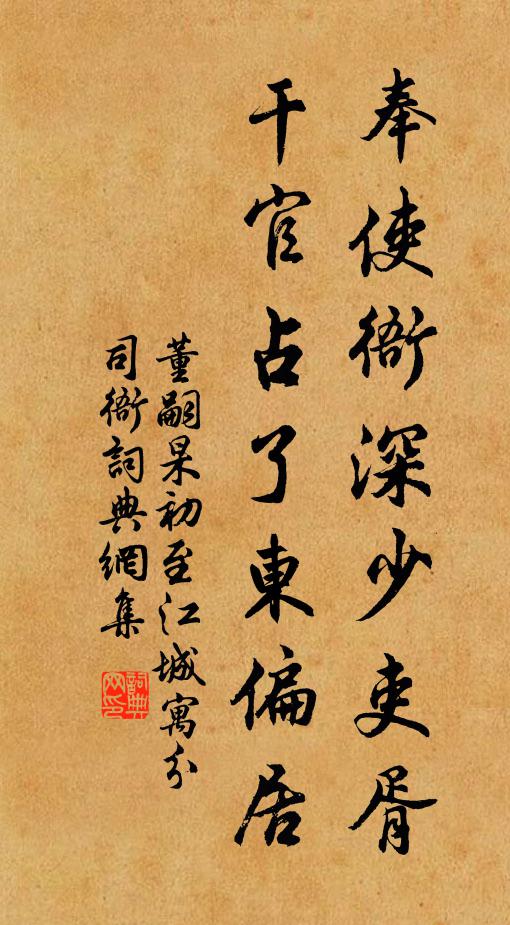 奉使衙深少吏胥
干官占了東偏居
董嗣杲初至江城寓分
司衙詞典網集
詞典网印